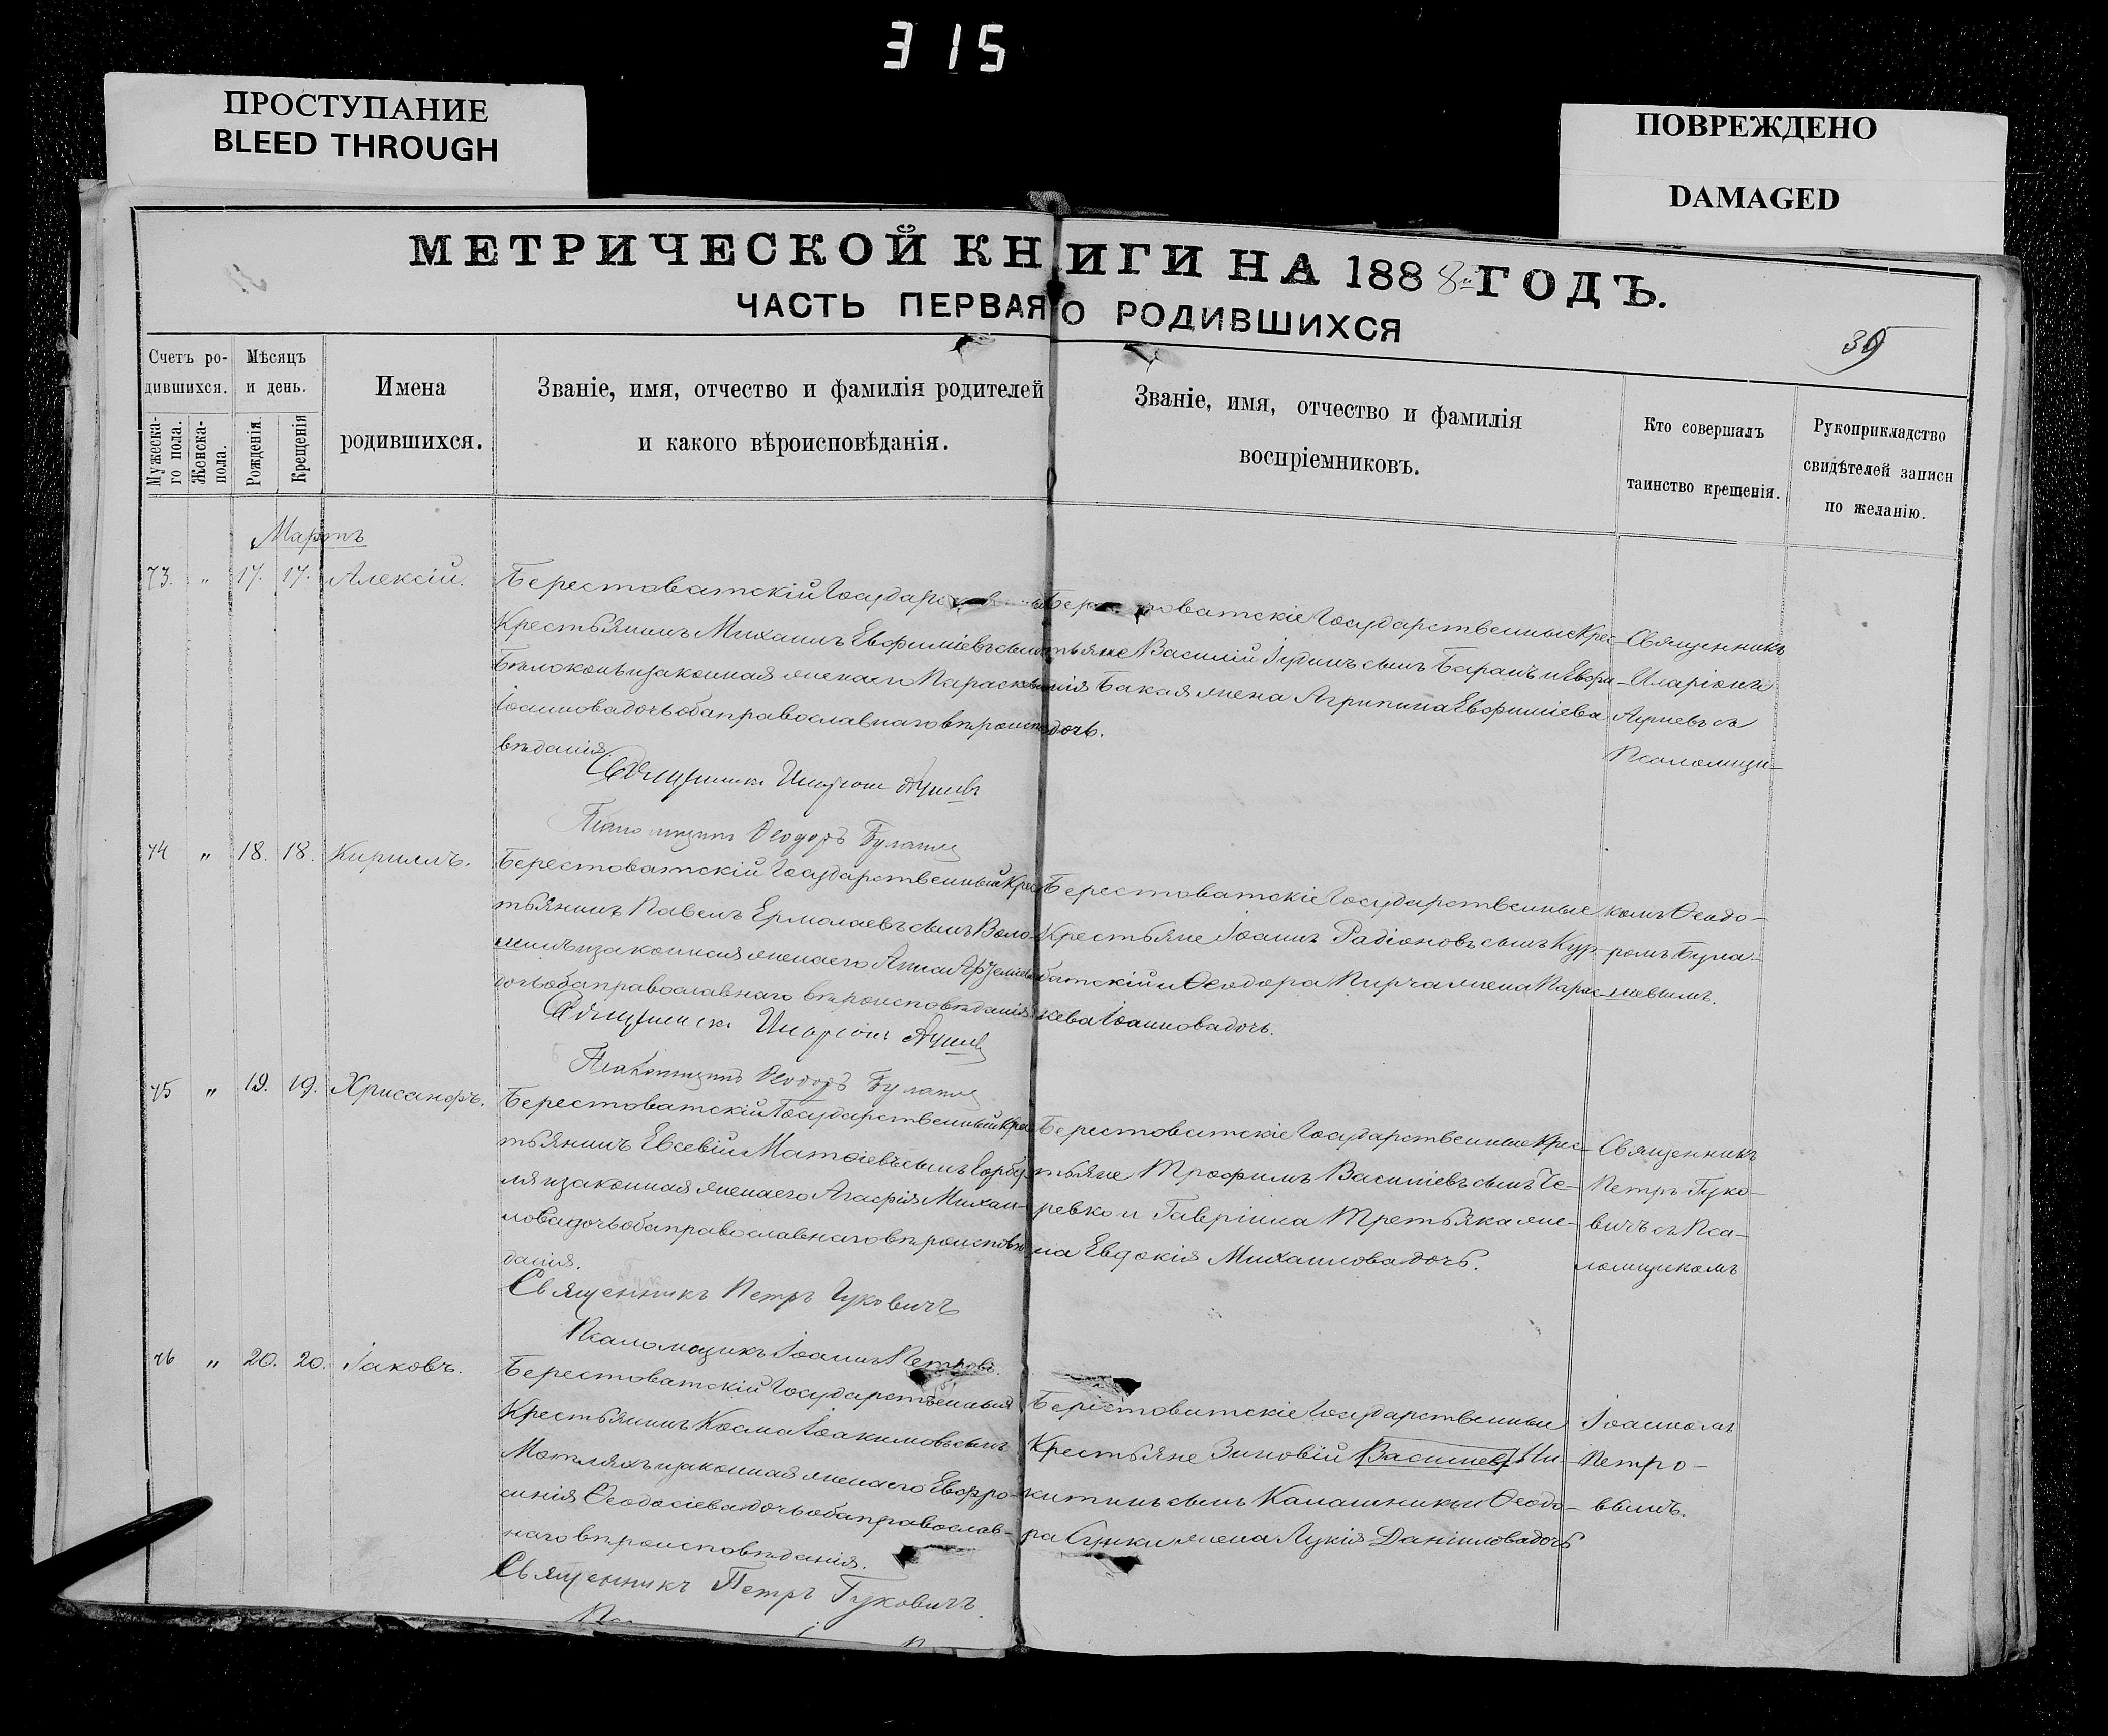 315
ПРОСТУПАНИЕ
BLEED THROUGH
ПОВРЕЖДЕНО
DAMAGED
МЕТРИЧЕСКОЙ КНИГИ НА 1888й ГОДЪ.
ЧАСТЬ ПЕРВАЯ О РОДИВШИХСЯ
39
Счетъ ро-
дившихся.
Мужеска-
го пола.
Женска-
пола.
Мѣсяцъ
и день.
Рожденія.
Крещенія
Имена
родившихся.
Званіе, имя, отчество и фамилія родителей
и какого вѣроисповѣданія.
Званіе, имя, отчество и фамилія
воспріемниковъ.
Кто совершалъ
таинство крещенія.
Рукоприкладство
свидѣтелей записи
по желанію.
Мартъ
73. " 17. 17. Алексій.
Берестоватскій
Крестьянинъ Михаилъ Евфиміевъ сынъ
Бѣлоконь и законная жена его
Іоаннова дочь оба православнаго вѣроиспо
вѣданія.
Священникъ
Псаломщикъ Ѳеодоръ
Государственные Крес-
тьяне Василій Іудинъ сынъ Баранъ и Евфи
мія Бакая жена Агрипина Евфиміева
дочь.
Священникъ
Иларіонъ
съ
Псаломщи-
74 " 18. 18. Кириллъ.
Берестоватскій Государственный Крес
тьянинъ Павелъ Ермолаевъ сынъ Воло-
шинъ и законная жена его Анна
дочь оба православнаго вѣроисповѣданія.
Священникъ
Псаломщикъ Ѳеодоръ
Берестоватскіе Государственные
Крестьяне Іоаннъ Радіоновъ сынъ Кур-
батскій и Ѳеодора Пирча жена Парас-
кева Іоаннова дочь.
комъ Ѳеодо-
ромъ Була-
шевымъ.
75 " 19. 19. Хрисанфъ.
Берестоватскій Государственный Крес
тьянинъ Евсевій Матѳіевъ сынъ Горбу
ля и законная жена его Агафія Михаи-
лова дочь оба православнаго вѣроисповѣ
данія.
Священникъ Петръ Гуковичъ
Псаломщикъ Іоаннъ Петровъ.
Берестоватскіе Государственные Крес-
тьяне Трофимъ Василіевъ сынъ Че-
ревко и Гавріила Третьяка же-
на Евдокія Михаилова дочь.
Священникъ
Петръ Гуко-
вичъ съ Пса-
ломщикомъ
76 " 20. 20. Іаковъ.
Берестоватскій Государственный
Крестьянинъ Косма Іоакимовъ сынъ
Мотляхъ и законная жена его Евфро-
синія Ѳеодосіева дочь оба православ-
наго вѣроисповѣданія.
Священникъ Петръ Гуковичъ.
Берестоватскіе Государственные
Крестьяне Зиновій Василіев Ни-
китинъ сынъ Калашникъ и Ѳеодо-
ра жена Лукія Даніилова дочь
Іоанномъ
Петро-
вымъ.